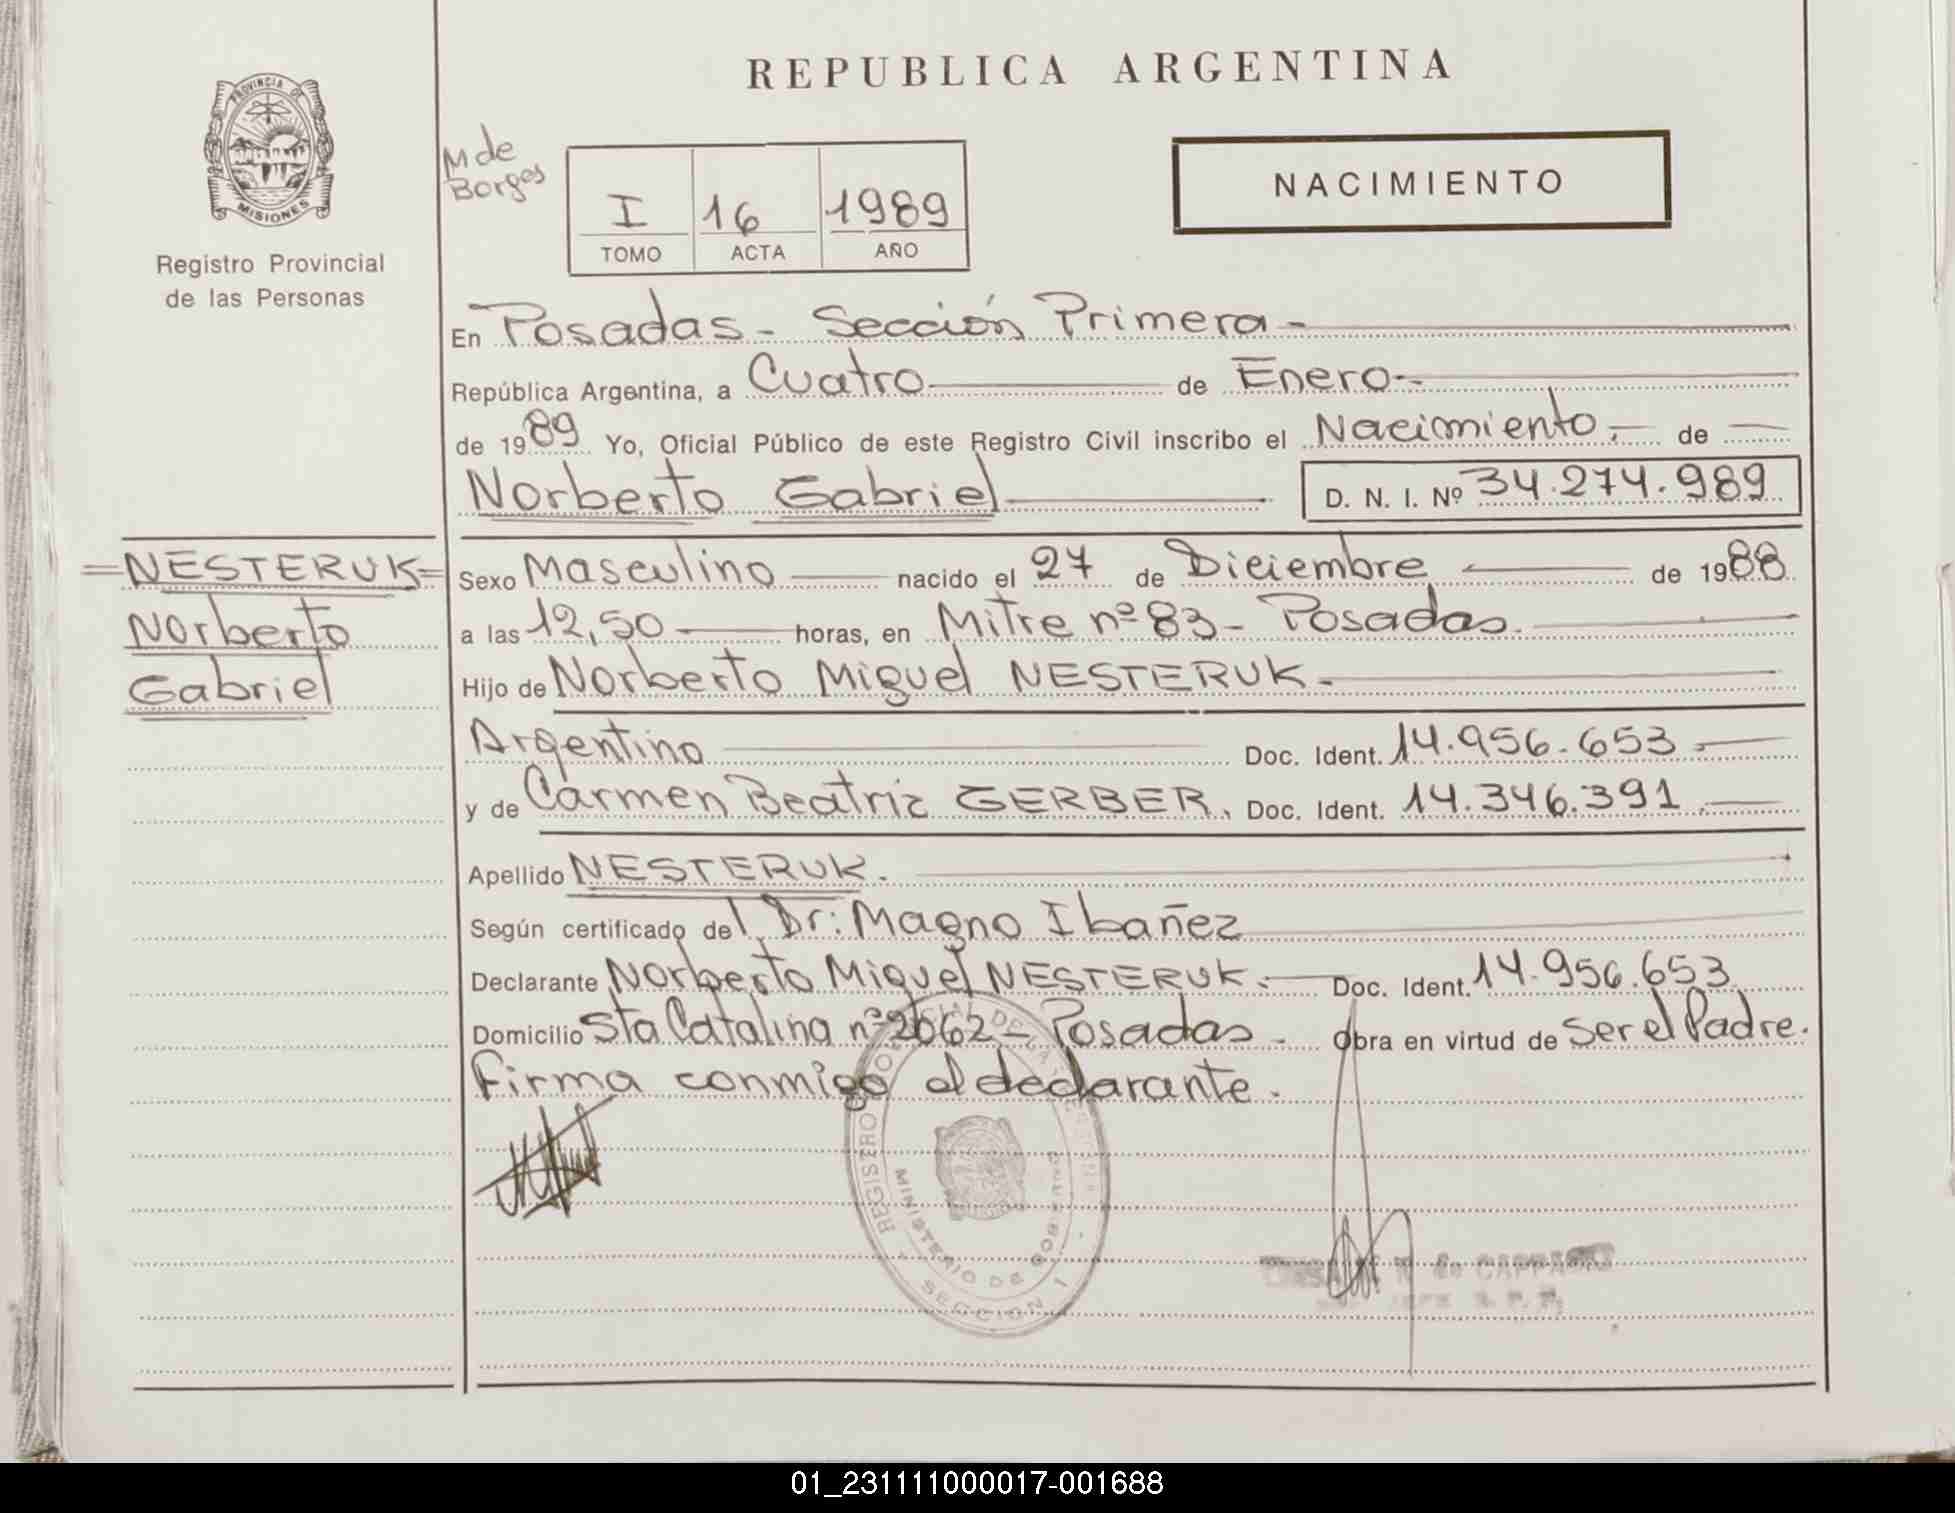 REPUBLICA ARGENTINA
PROVINCIA DE
MISIONES
Registro Provincial
de las Personas
M de
Borges
I 16 1989
TOMO ACTA AÑO
NACIMIENTO
En Posadas - Sección Primera -
República Argentina, a Cuatro de Enero -
de 1989 Yo, Oficial Público de este Registro Civil inscribo el Nacimiento. de
Norberto Gabriel D. N. I. Nº 34.274.989
= NESTERUK =
Norberto
Gabriel
Sexo Masculino nacido el 27 de Diciembre de 1988
a las 12,50 horas, en Mitre nº 83 - Posadas.
Hijo de Norberto Miguel NESTERUK.
Argentino Doc. Ident. 14.956.653
y de Carmen Beatriz GERBER. Doc. Ident. 14.346.391
Apellido NESTERUK.
Según certificado del Dr: Magno Ibañez
Declarante Norberto Miguel NESTERUK. Doc. Ident. 14.956.653
Domicilio Sta Catalina nº 2062 - Posadas - Obra en virtud de Ser el Padre.
Firma conmigo el declarante.
MINISTERIO DE GOBIERNO
SECCION 1
01_231111000017-001688